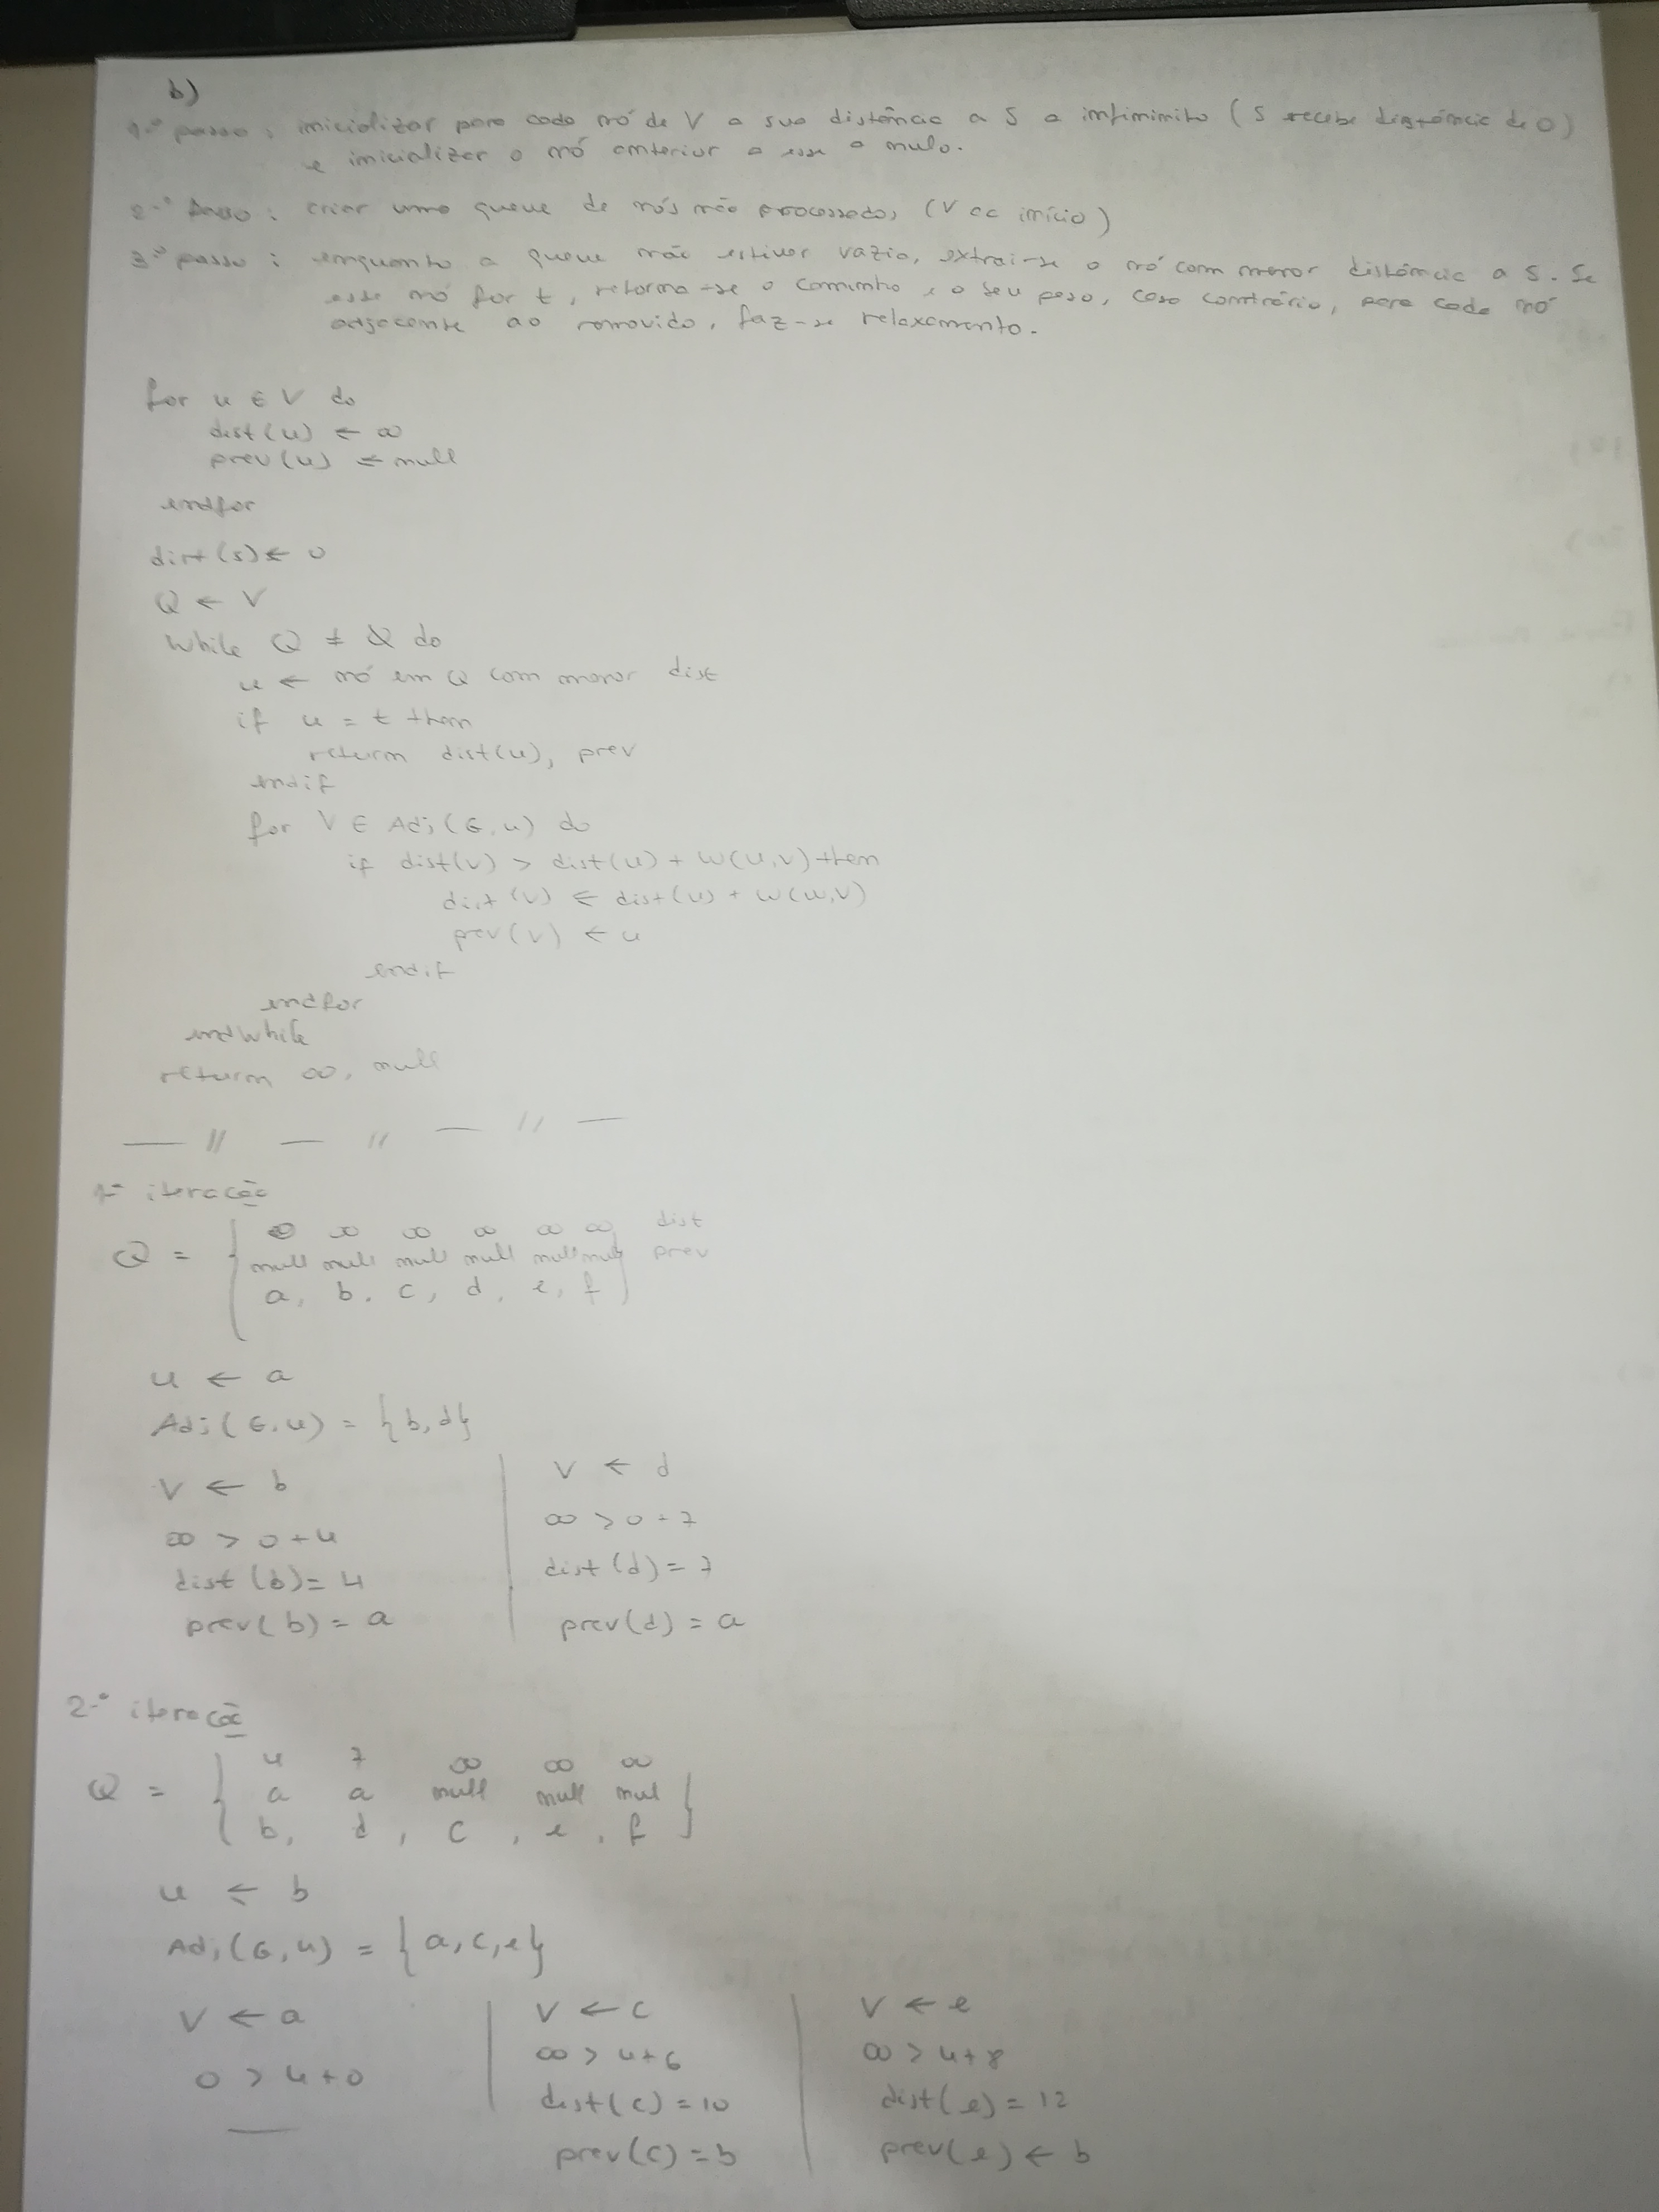 b)
1.º passo: inicializar para cada nó de V a sua distância a S a infiminito (S recebe distância de 0)
e inicializar o nó anterior a esse a nulo.
2.º passo: criar uma queue de nós não processados (V ao início)
3.º passo: enquanto a queue não estiver vazia, extrai-se o nó com menor distância a S. Se
esse nó for t, retorna-se o caminho e o seu peso, caso contrário, para cada nó
adjacente ao removido, faz-se relaxamento.
for u ∈ V do
dist(u) ← ∞
prev(u) ← null
endfor
dist(s) ← 0
Q ← V
while Q ≠ ∅ do
u ← nó em Q com menor dist
if u = t then
return dist(u), prev
endif
for V ∈ Adj(G,u) do
if dist(v) > dist(u) + w(u,v) then
dist(v) ← dist(u) + w(u,v)
prev(v) ← u
endif
endfor
endwhile
return ∞, null
— // — // — // —
1.ª iteração
0 ∞ ∞ ∞ ∞ ∞ dist
Q = { null null null null null null } prev
a, b, c, d, e, f
u ← a
Adj(G,u) = {b,d}
V ← b
∞ > 0+4
dist(b)=4
prev(b)=a
V ← d
∞ > 0+7
dist(d)=7
prev(d)=a
2.ª iteração
4 7 ∞ ∞ ∞
Q = { a a null null nul }
b, d, c, e, f
u ← b
Adj(G,u) = {a,c,e}
V ← a
0 > 4+0
—
V ← c
∞ > 4+6
dist(c)=10
prev(c)=b
V ← e
∞ > 4+8
dist(e)=12
prev(e) ← b